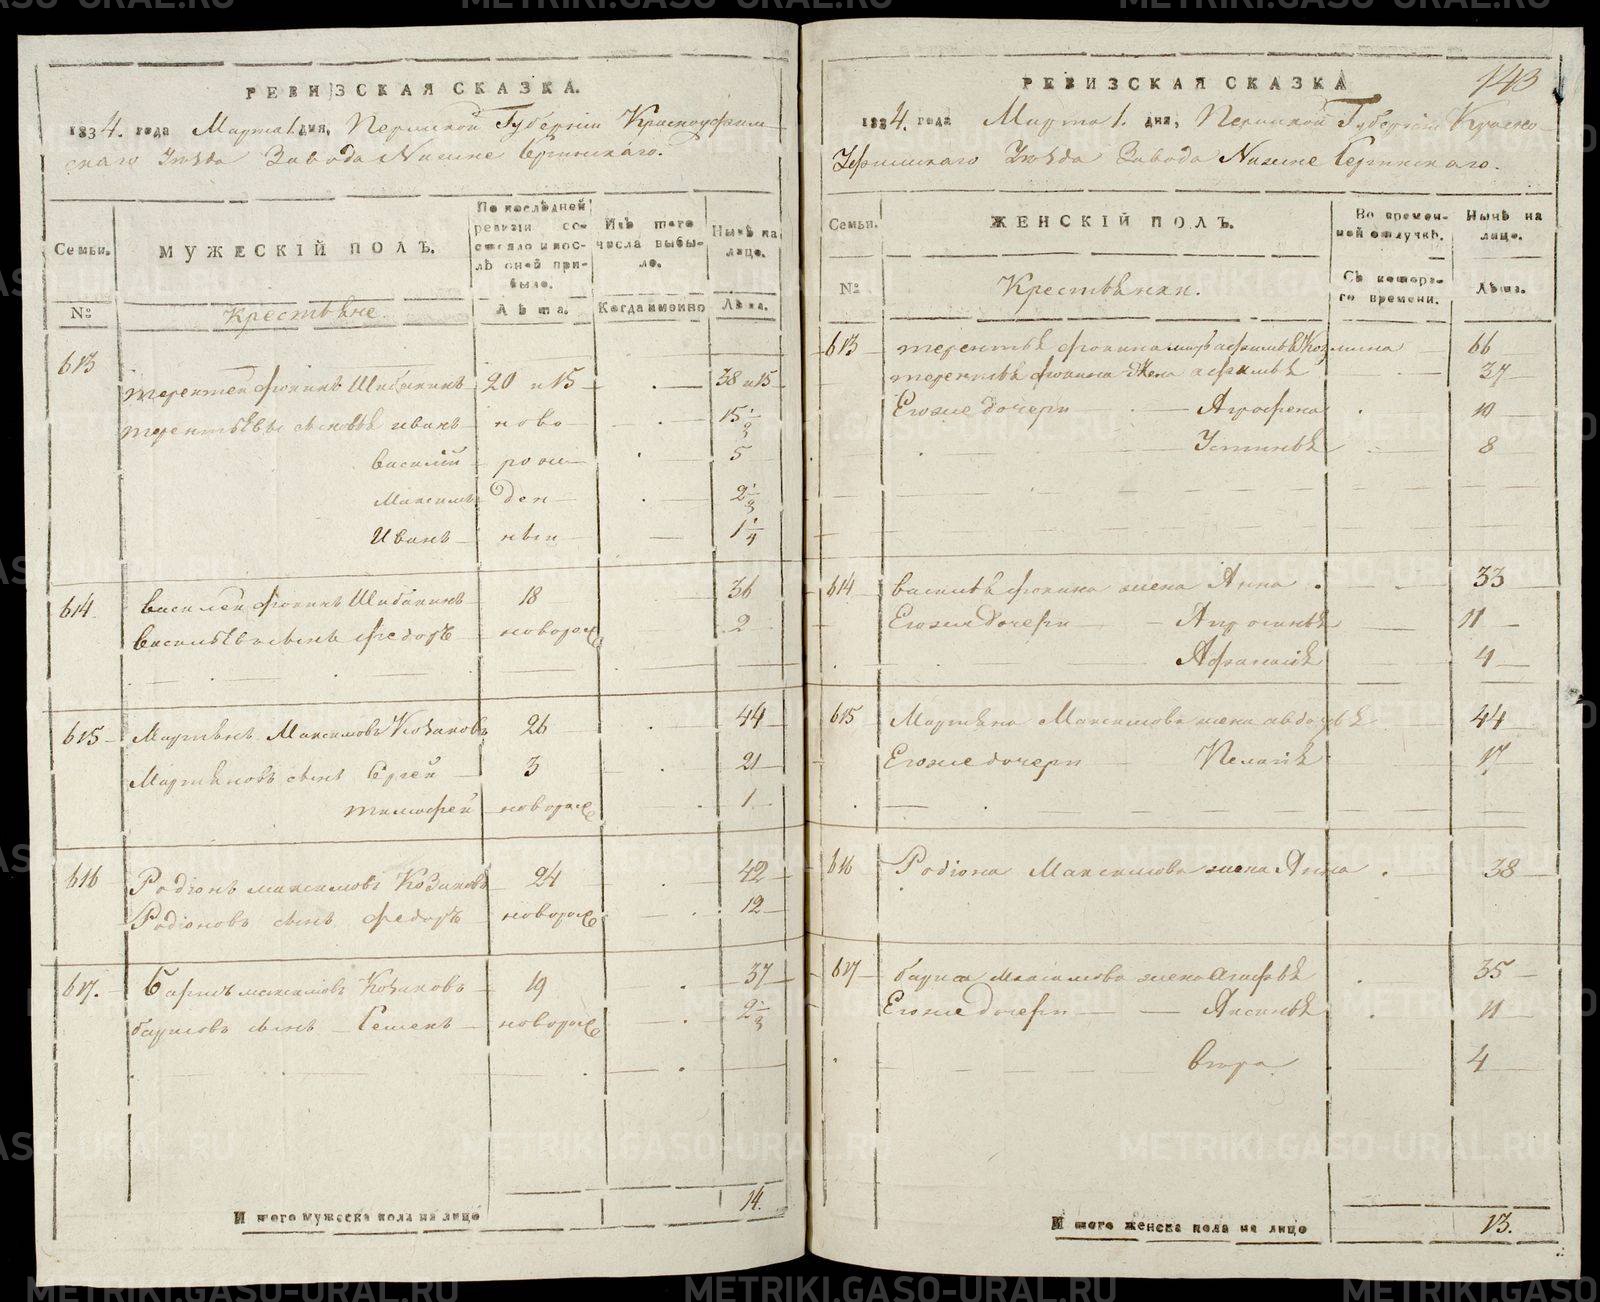 РЕВИЗСКАЯ СКАЗКА.
1834. года Марта 1. дня, Пермской Губернїи Красноуфим
скаго Уѣзда Завода Нижне Сергинскаго.
Семьи.
МУЖЕСКІЙ ПОЛЪ.
По послѣдней ревизіи состояло и послѣ оной прибыло.
Изъ того числа выбыло.
Нынѣ на лице.
№
Крестьѣне.
Лѣта.
Когда именно
Лѣта.
613
терентей фокинъ Шибакинъ 20 и 15 38 и 15
терентьѣвы сыновьѣ иванъ ново 15 1/2
василїй рож 5
Максимъ ден 2 1/2
Иванъ ныи 1 1/4
614 василей фокинъ Шибакинъ 18 36
васильѣвъ сынъ федоръ новорож 2
615 Мартынъ Максимовъ Козаковъ 26 44
Мартыновъ сынъ Сергей 3 21
тимофей новорож 1
616 Родїонъ максимовъ Козаковъ 24 42
Родїоновъ сынъ федоръ новорож 12
617. Барисъ максимовъ Козаковъ 19 37
барисовъ сынъ Семенъ новорож 2 1/2
Итого мужеска пола на лицо 14.
143
РЕВИЗСКАЯ СКАЗКА
1834. года Марта 1. дня, Пермской Губернїи Красно
Уфимскаго Уѣзда Завода Нижне Сергинскаго.
Семьи.
ЖЕНСКІЙ ПОЛЪ.
Во временной отлучкѣ.
Нынѣ на лице.
№
Крестьѣнки.
Съ котораго времени.
Лѣта.
613 терентьѣ фокина 66
терентьѣ фокина жена 37
Егоже дочери Агрофена 10
Устиньѣ 8
614 васильѣ фокина жена Анна 33
Егоже дочери 11
Афанасїѣ 4
615 Мартына Максимова жена авдотьѣ 44
Егоже дочери Пелагїѣ 17
616 Родїона Максимова жена Анна 38
617 бариса максимова жена агафьѣ 35
Егоже дочери Аксиньѣ 11
вѣра 4
Итого женска пола на лицо 13.
METRIKI.GASO-URAL.RU